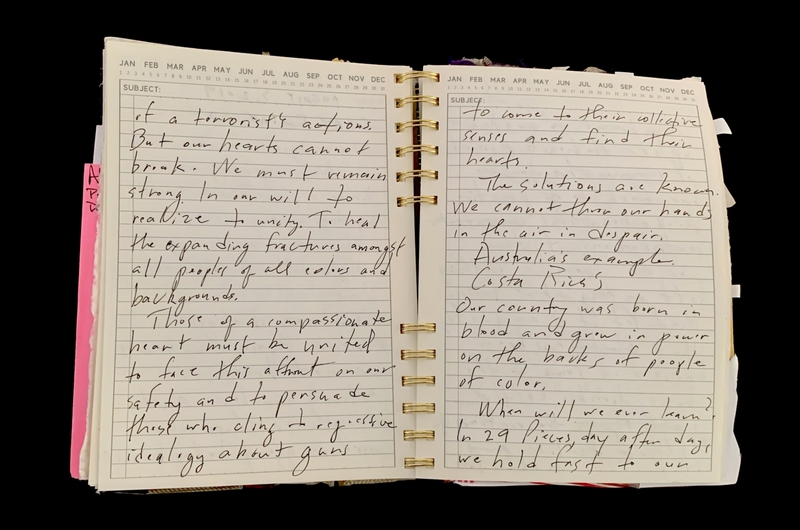 JAN FEB MAR APR MAY JUN JUL AUG SEP OCT NOV DEC
SUBJECT:
of a terrorist's actions.
But our hearts cannot
break. We must remain
strong in our will to
realize to unity. To heal
the expanding fractures amongst
all people of all colors and
backgrounds.
Those of a compassionate
heart must be united
to face this affront on our
safety and to persuade
those who cling to regressive
idealogy about guns
JAN FEB MAR APR MAY JUN JUL AUG SEP OCT NOV DEC
SUBJECT:
to come to their collective
senses and find their
hearts.
The solutions are known.
We cannot throw our hands
in the air in despair.
Australia's example.
Costa Rica's
Our country was born in
blood and grew in power
on the backs of people
of color.
When will we ever learn?
In 29 Pieces, day after day,
we hold fast to our